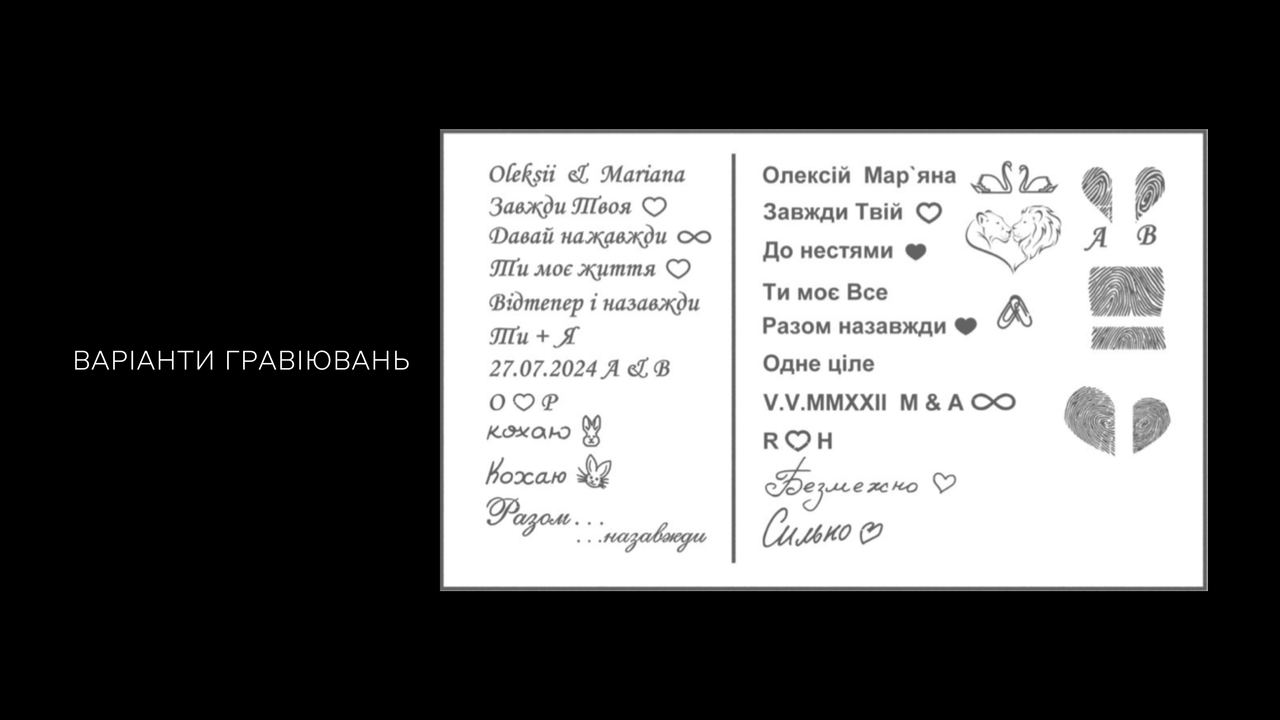 ВАРІАНТИ ГРАВІЮВАНЬ
Oleksii & Mariana
Завжди Твоя
Давай нажавжди
Ти моє життя
Відтепер і назавжди
Ти + Я
27.07.2024 А & В
О Р
кохаю
Кохаю
Разом...
...назавжди
Олексій Мар`яна
Завжди Твій
До нестями
Ти моє Все
Разом назавжди
Одне ціле
V.V.MMXXII M & A
R H
Безмежно
Сильно
А В